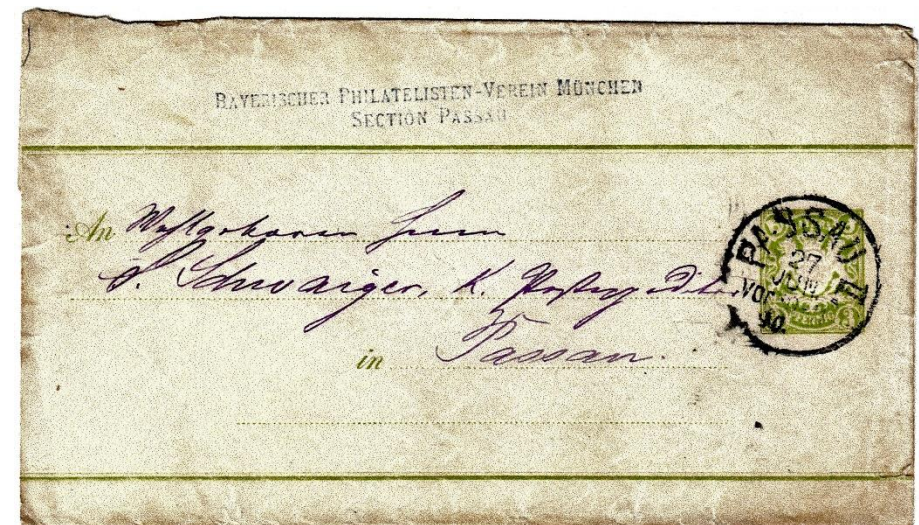 BAYERISCHER PHILATELISTEN-VEREIN MÜNCHEN
SECTION PASSAU
An Wohlgeboren Herrn
S. Schwaiger, K. Postexpeditor
in Passau.
PASSAU II
27
JUN
VOR
90
3